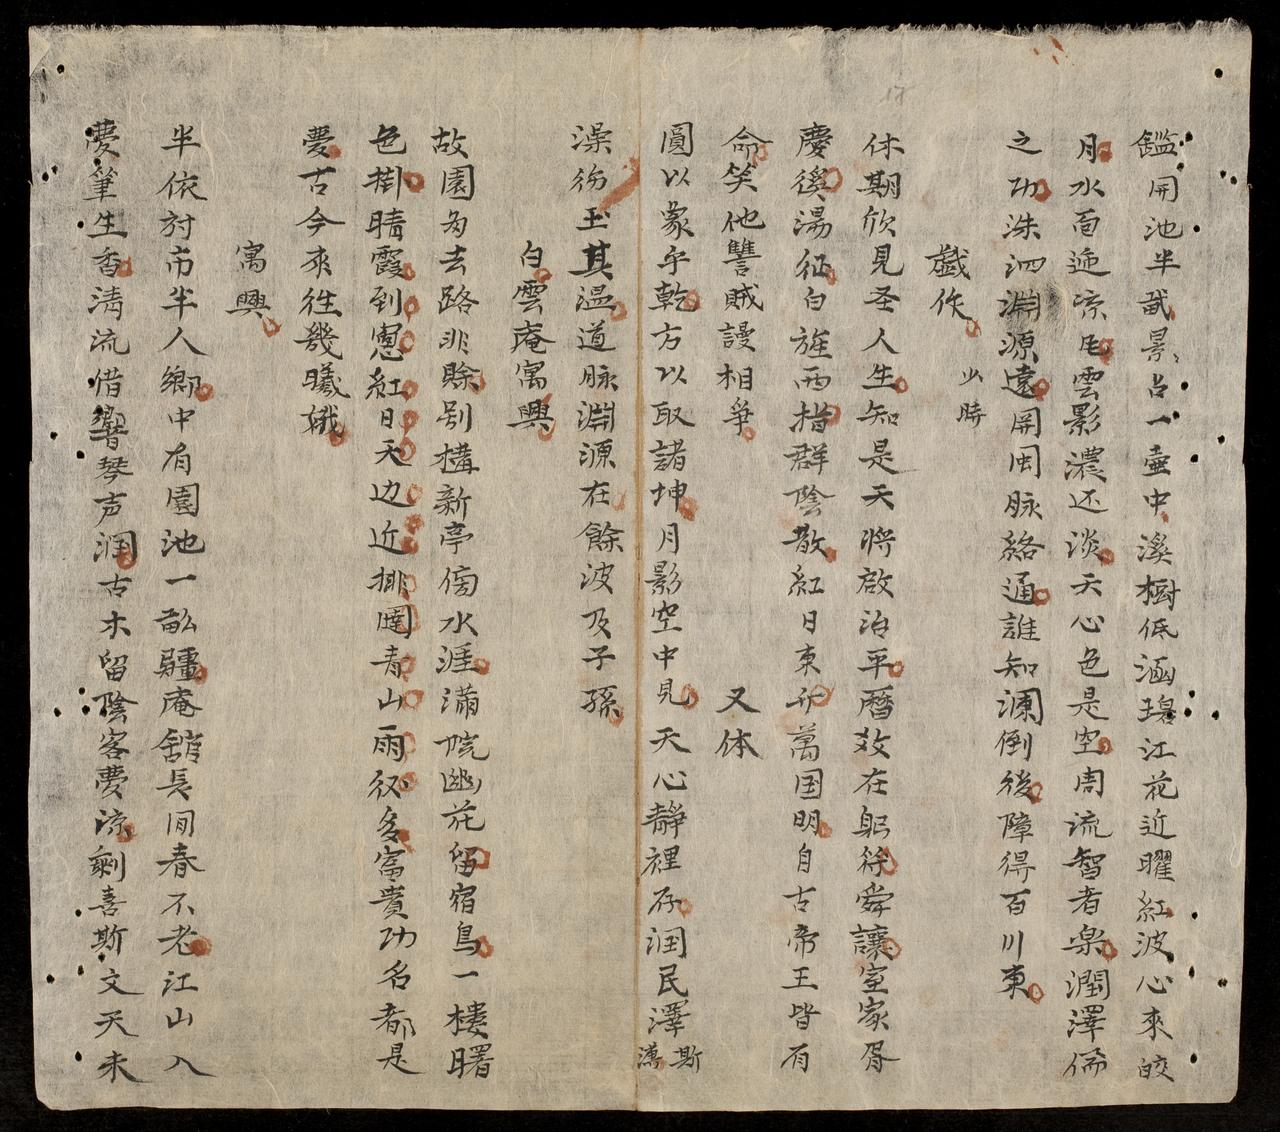 鑑開池半畝景占一壺中溪樹低涵碧江花近曜紅波心來皎
月水面迎凉風雲影濃还淡天心色是空周流智者楽潤澤儒
之功洙泗淵源遠関閩脉絡通誰知瀾倒後障得百川東
戯作 少時
休期欣見圣人生知是天將啟治平曆数在躬従舜讓室家胥
慶徯湯征白旄西指群陰散紅日東升萬国明自古帝王皆有
命笑他讐賊謾相爭
又体
圓以象乎乾方以取諸坤月影空中見天心靜裡存润民澤斯
溥
澡衸玉其温道脉淵源在餘波及子孫
白雲庵寓興
故園為去路非賖别構新亭傍水涯滿院幽花留宿鳥一樓曙
色掛晴霞到窓紅日天边近排闥青山雨後多富貴功名都是
夢古今來徃幾曦娥
寓興
半依村市半人鄉中有園池一畝疆庵舘長间春不老江山入
夢筆生香清流借響琴声润古木留陰客夢凉剩喜斯文天未